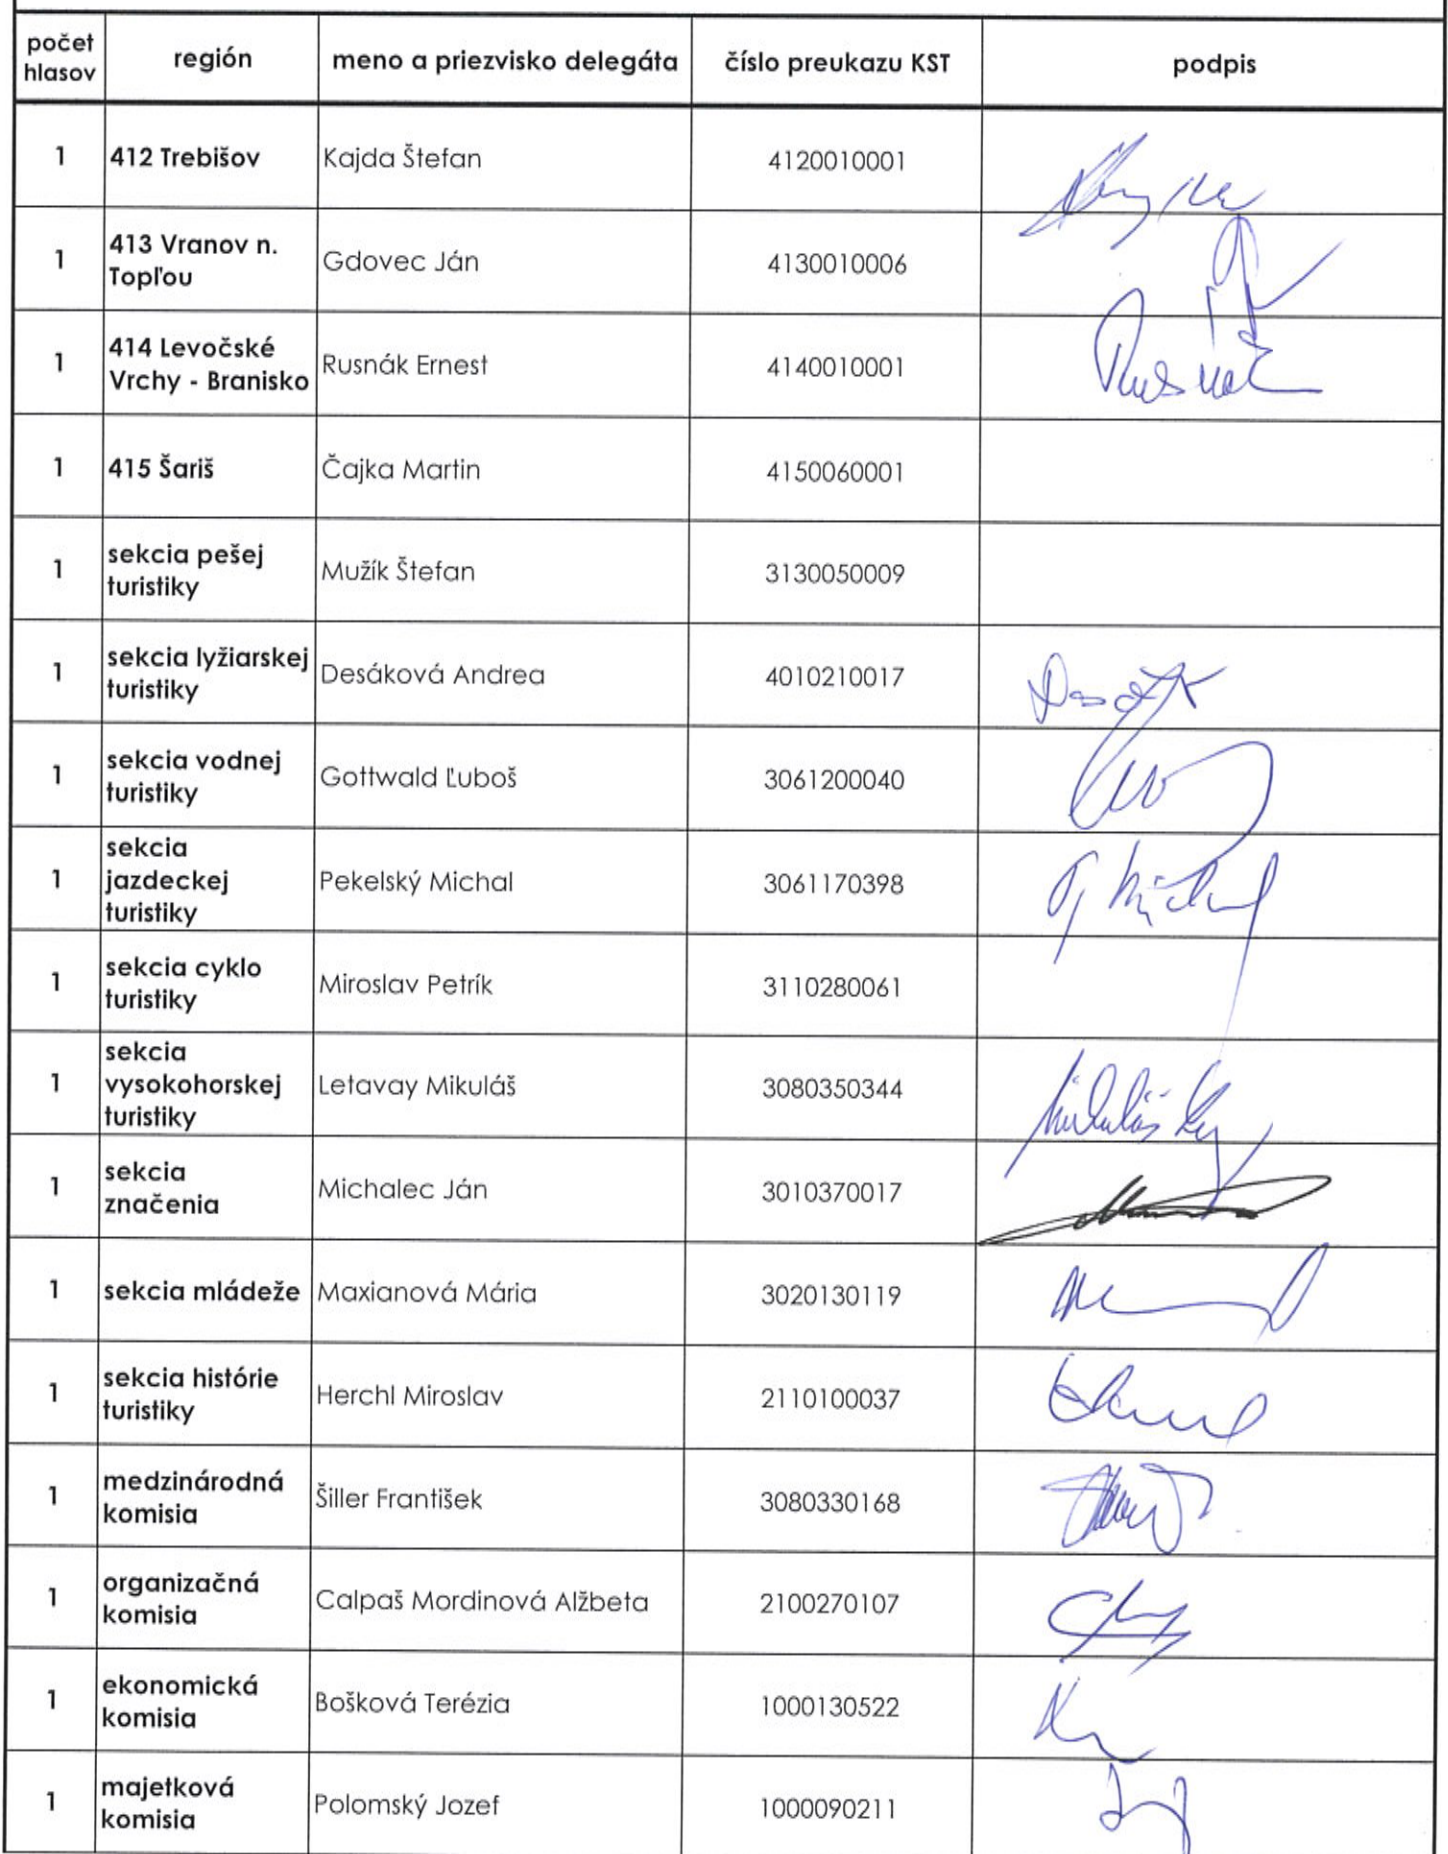 počet hlasov región meno a priezvisko delegáta číslo preukazu KST podpis
1 412 Trebišov Kajda Štefan 4120010001
1 413 Vranov n. Topľou Gdovec Ján 4130010006
1 414 Levočské Vrchy - Branisko Rusnák Ernest 4140010001 Rusnák
1 415 Šariš Čajka Martin 4150060001
1 sekcia pešej turistiky Mužík Štefan 3130050009
1 sekcia lyžiarskej turistiky Desáková Andrea 4010210017
1 sekcia vodnej turistiky Gottwald Ľuboš 3061200040
1 sekcia jazdeckej turistiky Pekelský Michal 3061170398
1 sekcia cyklo turistiky Miroslav Petrík 3110280061
1 sekcia vysokohorskej turistiky Letavay Mikuláš 3080350344
1 sekcia značenia Michalec Ján 3010370017
1 sekcia mládeže Maxianová Mária 3020130119
1 sekcia histórie turistiky Herchl Miroslav 2110100037
1 medzinárodná komisia Šiller František 3080330168
1 organizačná komisia Calpaš Mordinová Alžbeta 2100270107
1 ekonomická komisia Bošková Terézia 1000130522
1 majetková komisia Polomský Jozef 1000090211